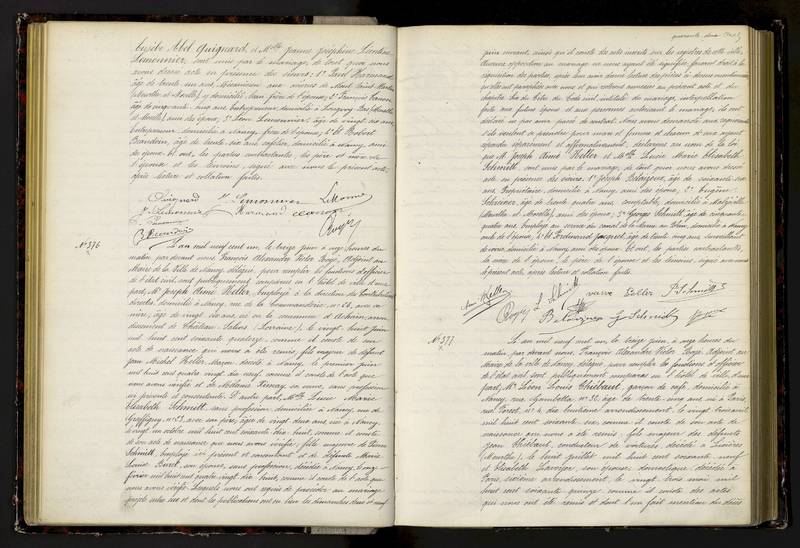 Eusèbe Abel Guignard, et Mlle Jeanne Joséphine Léontine
Limonnier, sont unis par le mariage, de tout quoi nous
avons dressé acte en présence des sieurs: 1° Paul Harmand
âgé de trente un ans, Mécanicien aux mines de Mont Saint Martin
(Meurthe et Moselle) y domicilié, beau frère de l'épouse; 2° François
âgé de cinquante cinq ans, Entrepreneur, domicilié à Longwy bas (Meurthe
et Moselle) ami des époux; 3° Léon Limonnier, âgé de vingt six ans
Entrepreneur domicilié à Nancy, frère de l'épouse; 4° et Robert
Baudoin, âgé de trente six ans, cafetier, domicilié à Nancy, ami
des époux. Et ont, les parties contractantes, les père et mère
l'épouse et les témoins signé avec nous le présent acte,
après lecture et collation faites.
Guignard J. Limonnier
Harmand
N° 376
L'an mil neuf cent un, le treize juin à onze heures du
matin, par devant nous François Alexandre Victor Boyé, Adjoint au
Maire de la Ville de Nancy, délégué pour remplir les fonctions d'officier
de l'état civil, sont publiquement comparus en l'hôtel de ville d'une
part, Mr Joseph Aimé Keller, employé à la direction des Contributions
directes, domicilié à Nancy, rue de la Commanderie, n° 23, avec sa
mère; âgé de vingt six ans, né en la commune d'
dissement de Château-Salins (Lorraine), le vingt huit juin
mil huit cent soixante quatorze, comme il conste de son
acte de naissance que nous a été remis, fils majeur de défunt
Jean Michel Keller, Maçon, décédé à Nancy, le premier juin
mil huit cent quatre vingt dix neuf, comme il conste de l'acte que
nous avons vérifié et de Mélanie sa veuve, sans profession
ici présente et consentante. D'autre part, Mlle Lucie Marie
Elisabeth Schmitt, sans profession, domiciliée à Nancy, rue de
Graffigny, n° 23, avec son père; âgée de vingt deux ans, née à Nancy,
le vingt un octobre mil huit cent soixante dix huit, comme il conste
de son acte de naissance que nous avons vérifié, fille majeure de Pierre
Schmitt, Employé ici présent et consentant et de défunte Marie
Louise, son épouse, sans profession, décédée à Nancy, le onze
février mil huit cent quatre vingt dix huit, comme il conste de l'acte que
nous avons vérifié. Lesquels nous ont requis de procéder au mariage
projeté entre eux et dont les publications ont eu lieu les dimanches deux et neuf
quarante deux
juin courant, ainsi qu'il conste des actes inscrits sur les registres de cette ville.
Aucune opposition au mariage ne nous ayant été signifiée, faisant droit à la
réquisition des parties, après leur avoir donné lecture des pièces ci-dessus mentionnées
qu'elles ont paraphées avec nous et qui resteront annexées au présent acte et du
chapitre six du titre du Code civil, intitulé du mariage, interpellation
faite aux futurs époux et aux personnes autorisant le mariage, ils ont
déclaré ne pas avoir passé de contrat. Nous avons demandé aux comparants
s'ils veulent se prendre pour mari et femme et chacun d'eux ayant
répondu séparément et affirmativement, déclarons au nom de la loi
que Mr Joseph Aimé Keller et Mlle Lucie Marie Elisabeth
Schmitt, sont unis par le mariage, de tout quoi nous avons dressé
acte en présence des sieurs: 1° Joseph, âgé de soixante six
ans, Propriétaire, domicilié à Nancy, ami des époux; 2° Eugène
âgé de trente quatre ans, comptable, domicilié à
(Meurthe et Moselle), ami des époux; 3° Georges Schmitt, âgé de cinquante
quatre ans, employé au service du canal de la Marne au Rhin, domicilié à Nancy
oncle de l'épouse; 4° et Ferdinand Jacquot, âgé de trente cinq ans,
domicilié à Nancy, ami des époux. Et ont, les parties contractantes,
la mère de l'époux, le père de l'épouse et les témoins, signé avec nous
le présent acte, après lecture et collation faites.
Aimé Keller L. Schmitt veuve Keller P. Schmitt
G. Schmitt
N° 377
L'an mil neuf cent un, le treize juin, à onze heures du
matin, par devant nous, François Alexandre Victor Boyé, Adjoint au
Maire de la ville de Nancy, délégué pour remplir les fonctions d'officier
de l'état civil sont publiquement comparus en l'hôtel de ville, d'une
part, Mr Léon Louis Thiébaut, garçon de café, domicilié à
Nancy, rue Gambetta, n° 32, âgé de trente cinq ans, né à Paris,
rue, n° 4, dix huitième arrondissement, le vingt trois avril
mil huit cent soixante six, comme il conste de son acte de
naissance que nous a été remis, fils majeur des défunts
Jean Thiébaut, conducteur de, décédé à
(Meurthe), le huit juillet mil huit cent soixante neuf
et Elisabeth, son épouse, domestique, décédée à
Paris, sixième arrondissement, le vingt trois mai mil
huit cent soixante quinze, comme il conste des actes
qui nous ont été remis et dont l'un fait mention du décès